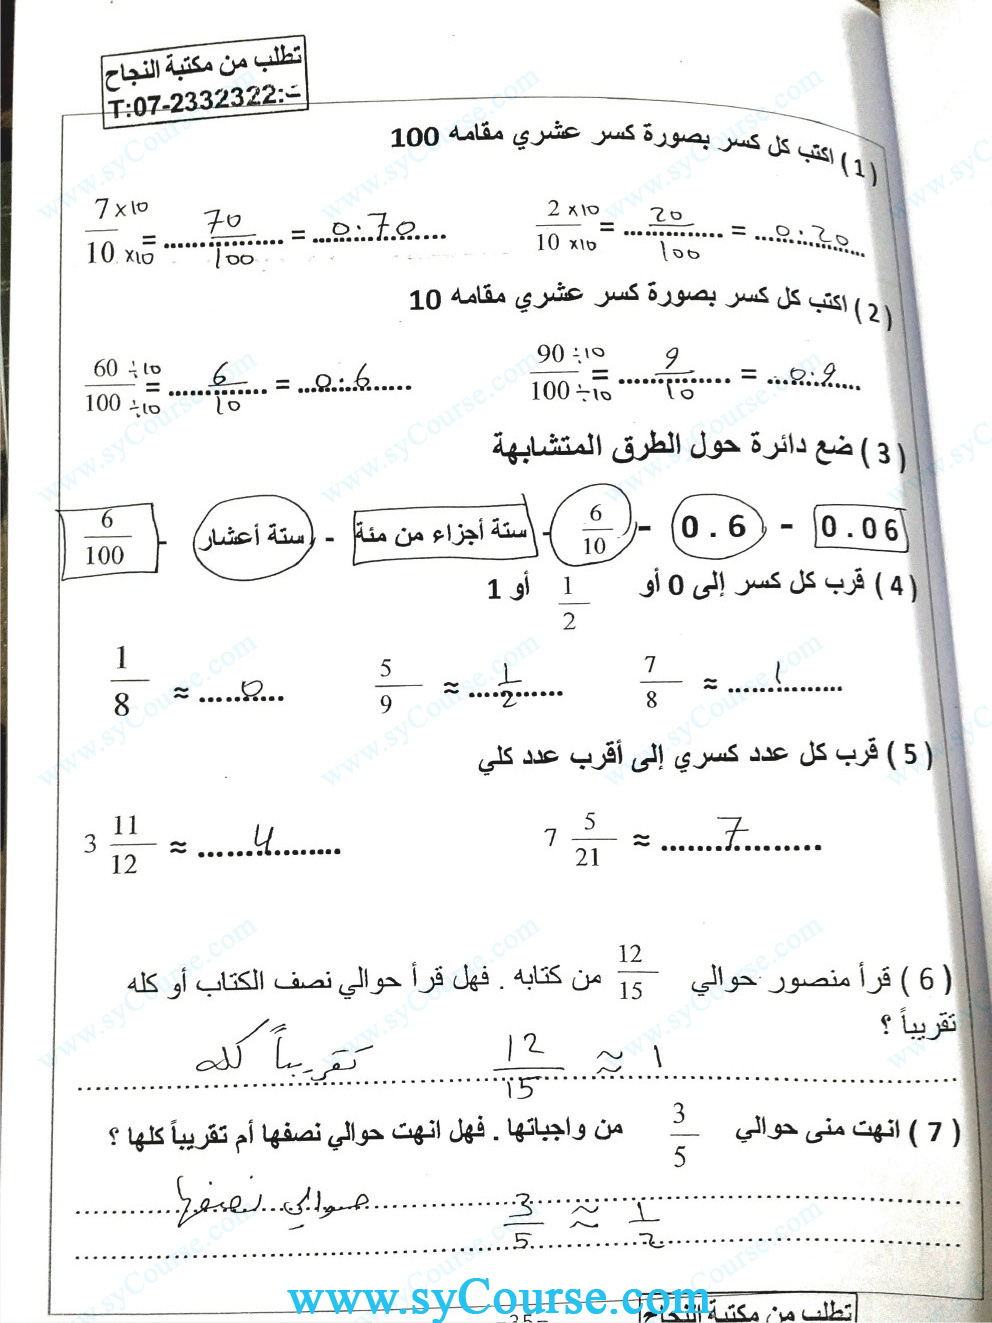 تطلب من مكتبة النجاح
ت:T:07-2332322
(1) اكتب كل كسر بصورة كسر عشري مقامه 100
7×10/10×10 = 70/100 = 0.70 2×10/10×10 = 20/100 = 0.20
(2) اكتب كل كسر بصورة كسر عشري مقامه 10
60÷10/100÷10 = 6/10 = 0.6 90÷10/100÷10 = 9/10 = 0.9
(3) ضع دائرة حول الطرق المتشابهة
0.06 - 0.6 - 6/10 - ستة أجزاء من مئة - ستة أعشار - 6/100
(4) قرب كل كسر إلى 0 أو 1/2 أو 1
1/8 ≈ 0 5/9 ≈ 1/2 7/8 ≈ 1
(5) قرب كل عدد كسري إلى أقرب عدد كلي
3 11/12 ≈ 4 7 5/21 ≈ 7
(6) قرأ منصور حوالي 12/15 من كتابه . فهل قرأ حوالي نصف الكتاب أو كله
تقريباً ؟
12/15 ≈ 1 تقريباً كله
(7) انهت منى حوالي 3/5 من واجباتها . فهل انهت حوالي نصفها أم تقريباً كلها ؟
3/5 ≈ 1/2 حوالي نصفها
www.syCourse.com
-35-
تطلب من مكتبة النجاح